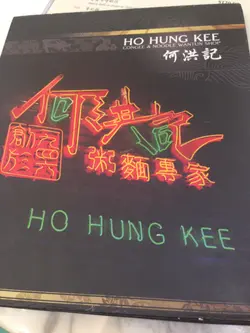 HO HUNG KEE
CONGEE & NOODLE WANTUN SHOP
何洪記
何洪記
粥麵專家
HO HUNG KEE